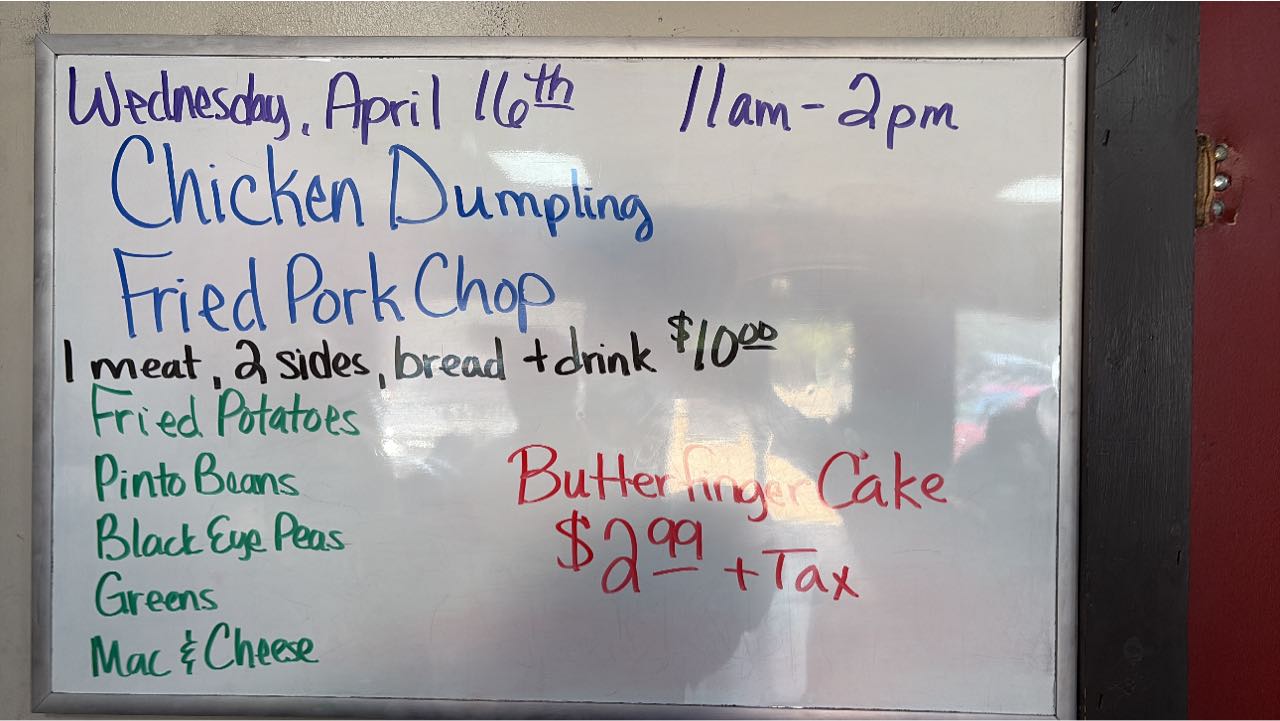 Wednesday, April 16th 11am - 2pm
Chicken Dumpling
Fried Pork Chop
1 meat, 2 sides, bread + drink $10.00
Fried Potatoes
Pinto Beans
Black Eye Peas
Greens
Mac & Cheese
Butterfinger Cake
$2.99 + Tax